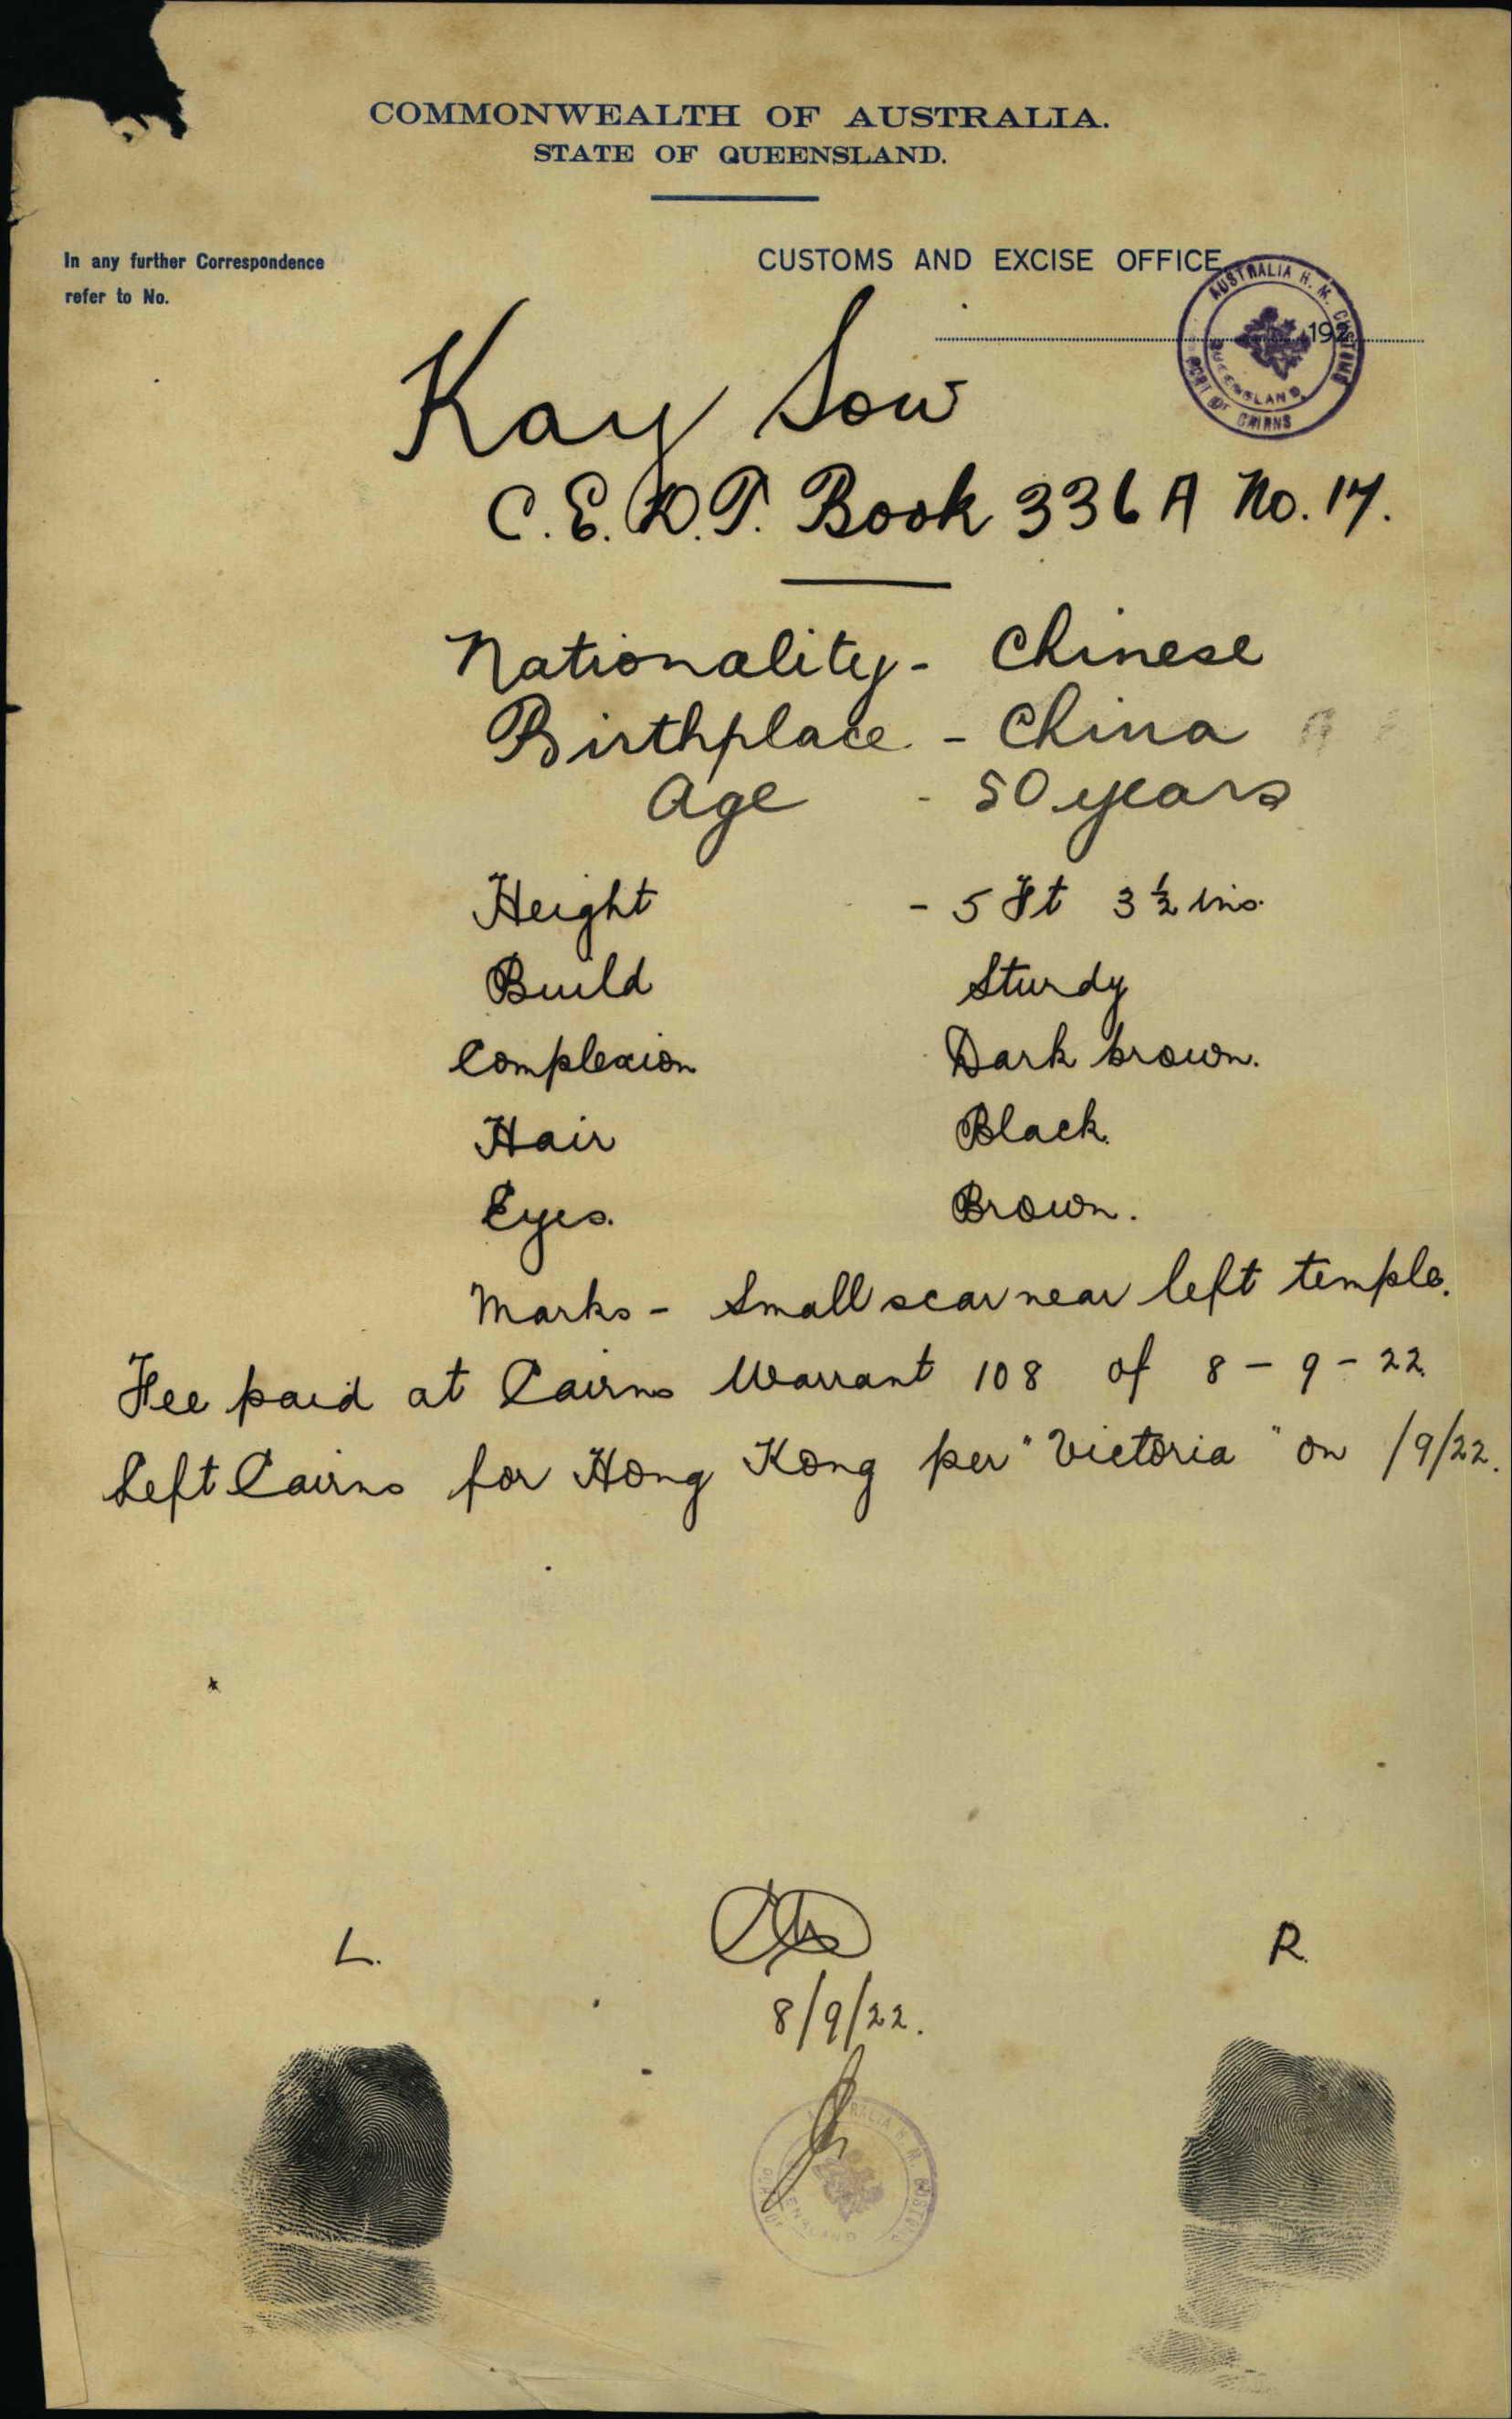 COMMONWEALTH OF AUSTRALIA.
STATE OF QUEENSLAND.
In any further Correspondence
refer to No.
CUSTOMS AND EXCISE OFFICE,
192
AUSTRALIA H. M. CUSTOMS
PORT OF CAIRNS
QUEENSLAND
Kay Sow
C.E.D.T. Book 336 A No. 17.
Nationality - Chinese
Birthplace - China
Age - 50 years
Height - 5 Ft 3 ½ ins.
Build Sturdy
Complexion Dark brown.
Hair Black.
Eyes. Brown.
Marks - Small scar near left temple.
Fee paid at Cairns Warrant 108 of 8 - 9 - 22.
Left Cairns for Hong Kong per "Victoria" on /9/22.
L.
R.
8/9/22.
AUSTRALIA H. M. CUSTOMS